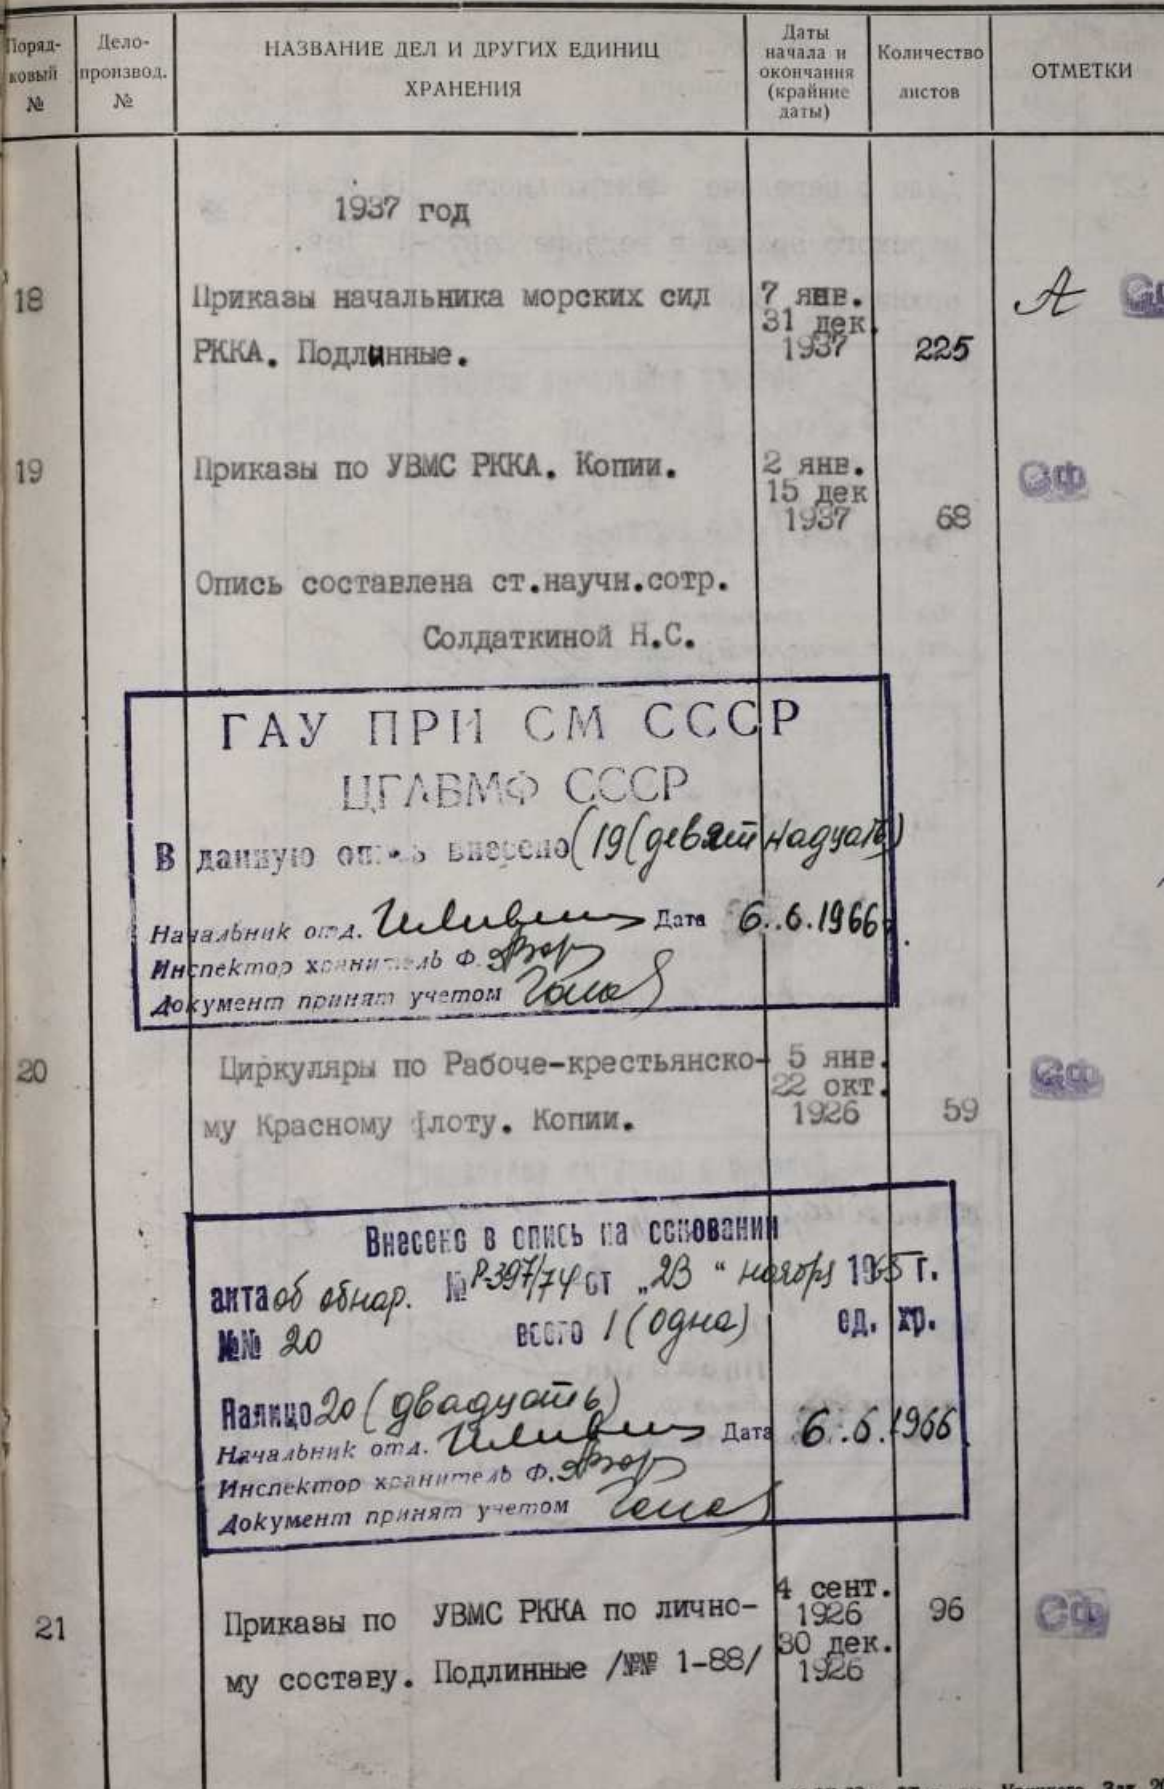 Поряд-
ковый
№
Дело-
производ.
№
НАЗВАНИЕ ДЕЛ И ДРУГИХ ЕДИНИЦ
ХРАНЕНИЯ
Даты
начала и
окончания
(крайние
даты)
Количество
листов
ОТМЕТКИ
1937 год
18
Приказы начальника морских сил
РККА. Подлинные.
7 янв.
31 дек.
1937
225
А
СФ
19
Приказы по УВМС РККА. Копии.
2 янв.
15 дек
1937
68
СФ
Опись составлена ст.научн.сотр.
Солдаткиной Н.С.
ГАУ ПРИ СМ СССР
ЦГАВМФ СССР
В данную опись внесено (19 (девятнадцать)
Начальник отд. Дата 6.6.1966
Инспектор хранитель Ф.
Документ принят учетом
20
Циркуляры по Рабоче-крестьянско-
му Красному флоту. Копии.
5 янв.
22 окт.
1926
59
СФ
Внесено в опись на основании
акта об обнар. № Р-397/74 от „23" ноября 1965 г.
№№ 20 всего 1 (одна) ед. хр.
Налицо 20 (двадцать)
Начальник отд. Дата 6.6.1966
Инспектор хранитель Ф.
Документ принят учетом
21
Приказы по УВМС РККА по лично-
му составу. Подлинные /№№ 1-88/
4 сент.
1926
30 дек.
1926
96
СФ